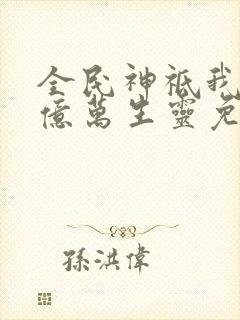 全民神祇我
億萬生靈免
孫洪偉